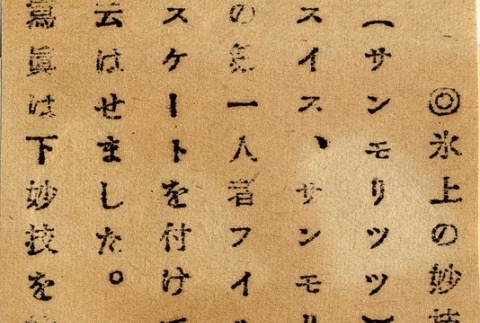 ◎氷上の妙技
(サンモリツツ)
スイス、サンモリ
の第一人者フイル
スケートを付けて
云はせました。
寫眞は下妙技を